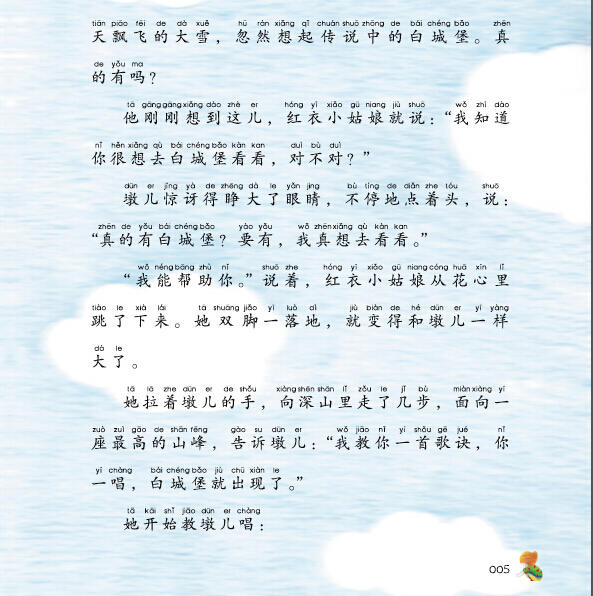 tiān piāo fēi de dà xuě hū rán xiǎng qǐ chuán shuō zhōng de bái chéng bǎo zhēn
天飘飞的大雪，忽然想起传说中的白城堡。真
de yǒu ma
的有吗？
tā gāng gāng xiǎng dào zhè er hóng yī xiǎo gū niang jiù shuō wǒ zhī dào
他刚刚想到这儿，红衣小姑娘就说：“我知道
nǐ hěn xiǎng qù bái chéng bǎo kàn kan duì bù duì
你很想去白城堡看看，对不对？”
dūn er jīng yà de zhēng dà le yǎn jing bù tíng de diǎn zhe tóu shuō
墩儿惊讶得睁大了眼睛，不停地点着头，说：
zhēn de yǒu bái chéng bǎo yào yǒu wǒ zhēn xiǎng qù kàn kan
“真的有白城堡？要有，我真想去看看。”
wǒ néng bāng zhù nǐ shuō zhe hóng yī xiǎo gū niang cóng huā xīn lǐ
“我能帮助你。”说着，红衣小姑娘从花心里
tiào le xià lái tā shuāng jiǎo yí luò dì jiù biàn de hé dūn er yí yàng
跳了下来。她双脚一落地，就变得和墩儿一样
dà le
大了。
tā lā zhe dūn er de shǒu xiàng shēn shān lǐ zǒu le jǐ bù miàn xiàng yí
她拉着墩儿的手，向深山里走了几步，面向一
zuò zuì gāo de shān fēng gào su dūn er wǒ jiāo nǐ yì shǒu gē jué nǐ
座最高的山峰，告诉墩儿：“我教你一首歌诀，你
yí chàng bái chéng bǎo jiù chū xiàn le
一唱，白城堡就出现了。”
tā kāi shǐ jiāo dūn er chàng
她开始教墩儿唱：
005